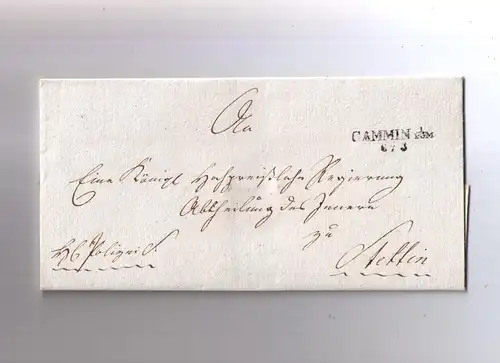 An
CAMMIN
Eine Königl Hochpreißliche Regierung
Abtheilung des Innern
zu
Polizei S.
Stettin